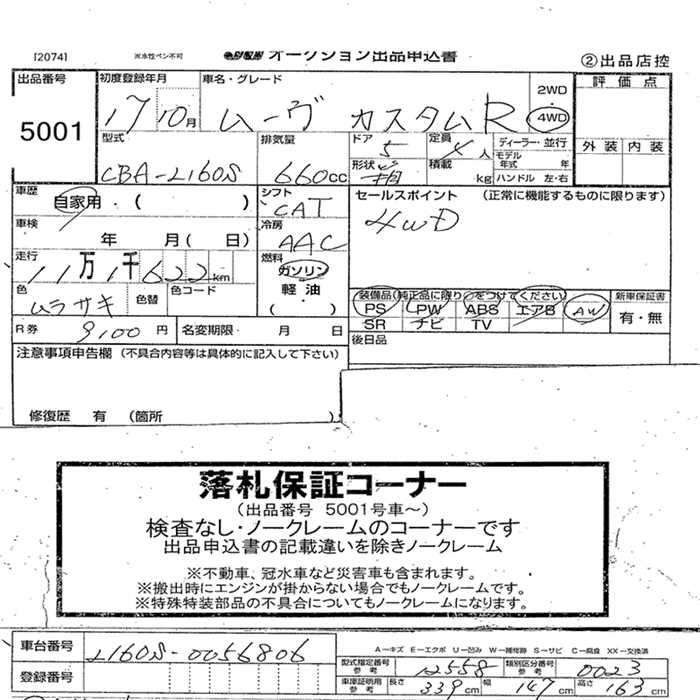 [2074] ※水性ペン不可 オークション出品申込書 ②出品店控
出品番号 初度登録年月 車名・グレード 2WD・4WD 評価点
5001 17 10月 ムーヴ カスタムR
型式 排気量 ドア 定員 ディーラー・並行 外装 内装
CBA-L160S 660cc 5 4人 モデル年式 年
形状 箱 積載 kg ハンドル 左・右
車歴 自家用・( ) シフト CAT セールスポイント (正常に機能するものに限ります)
車検 年 月( 日) 冷房 AAC 4WD
走行 11万1千622km 燃料 ガソリン
色 ムラサキ 色替 色コード 軽油 ( )
装備品(純正品に限り○をつけてください) 新車保証書
PS PW ABS エアB AW 有・無
SR ナビ TV
R券 9,100円 名変期限・ 月 日 後日品
注意事項申告欄 (不具合内容等は具体的に記入して下さい)
修復歴 有 (箇所 )
落札保証コーナー
(出品番号 5001号車~)
検査なし・ノークレームのコーナーです
出品申込書の記載違いを除きノークレーム
※不動車、冠水車など災害車も含まれます。
※搬出時にエンジンが掛からない場合でもノークレームです。
※特殊特装部品の不具合についてもノークレームになります。
車台番号 L160S-0056806 A-キズ E-エクボ U-凹み W-補修跡 S-サビ C-腐食 XX-交換済
登録番号 型式指定番号 参考 12558 類別区分番号 参考 0023
車庫証明用 参考 長さ 339cm 幅 147cm 高さ 163cm